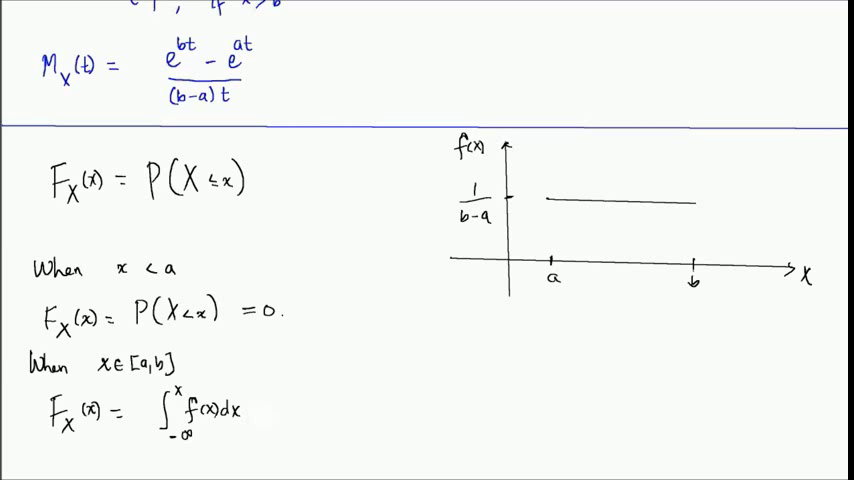 1, if x > b
M_X(t) = \frac{e^{bt} - e^{at}}{(b-a)t}
F_X(x) = P(X ≤ x)
When x < a
F_X(x) = P(X < x) = 0.
When x ∈ [a,b]
F_X(x) = \int_{-∞}^{x} f(x)dx
f(x)
\frac{1}{b-a}
a
b
X